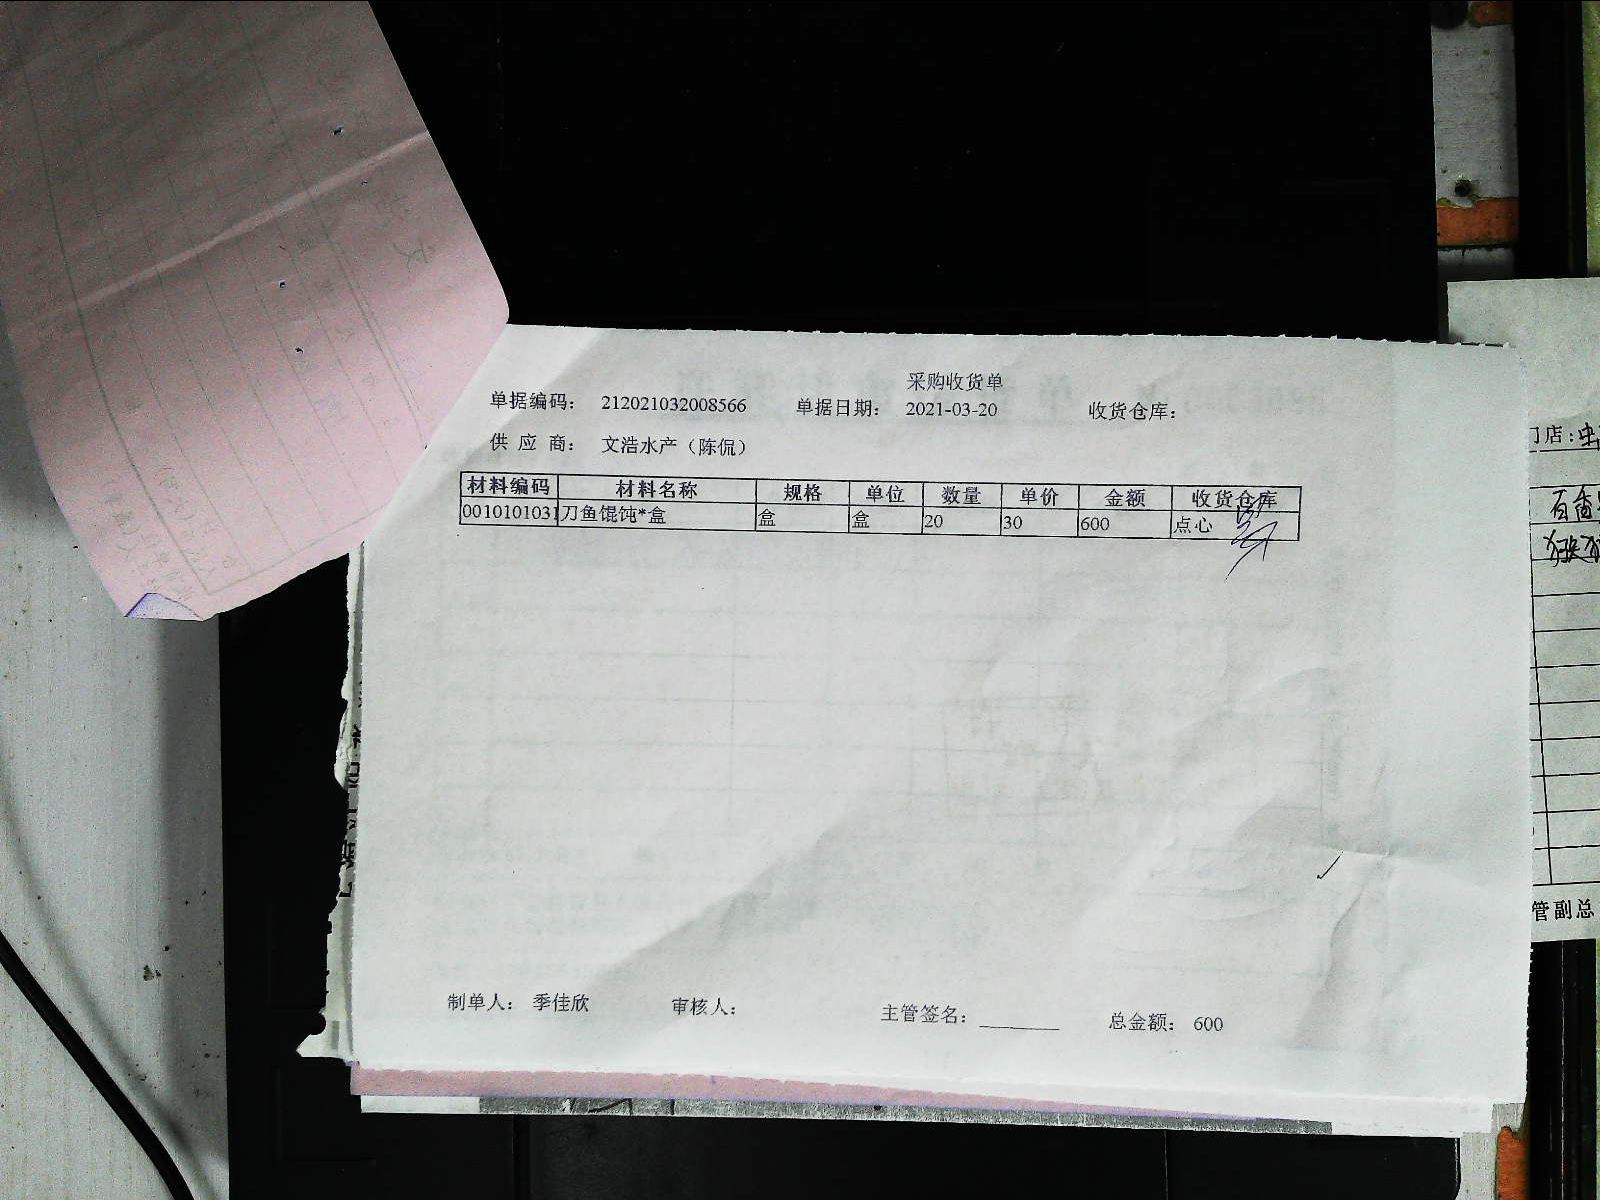 采购收货单
单据编码: 212021032008566 单据日期: 2021-03-20 收货仓库:
供 应 商: 文浩水产（陈侃）
材料编码 材料名称 规格 单位 数量 单价 金额 收货仓库
0010101031 刀鱼馄饨*盒 盒 盒 20 30 600 点心
制单人: 季佳欣 审核人: 主管签名: 总金额: 600
门店:
百香
管副总